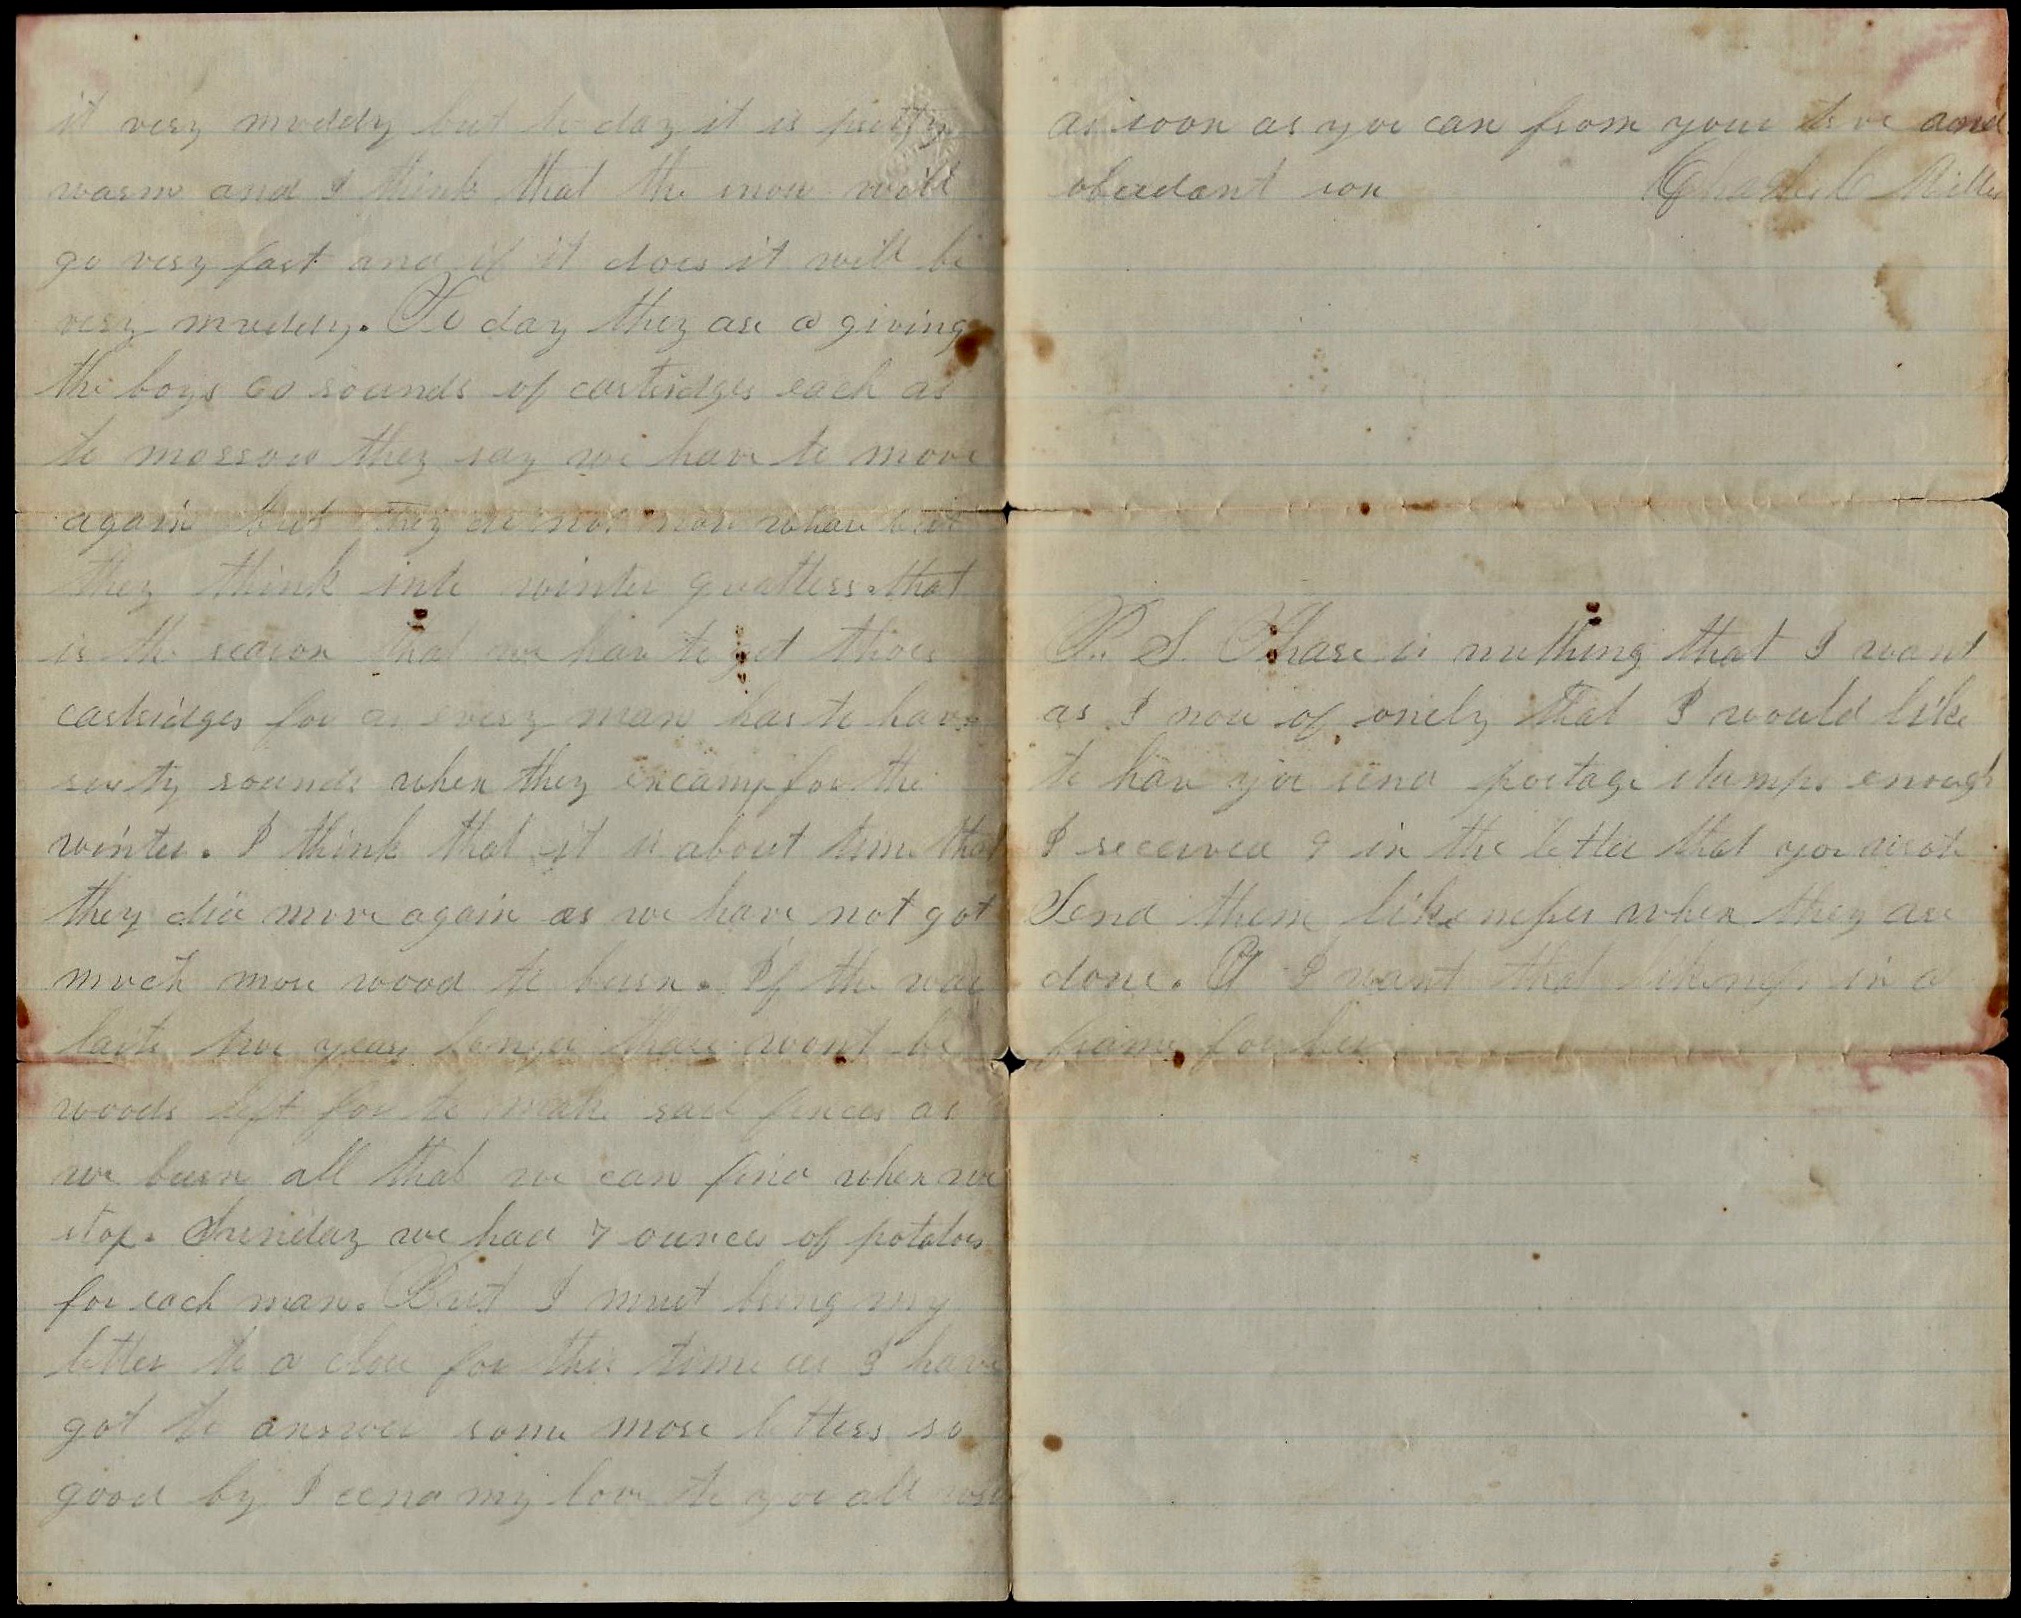 it very muddy but to day it is pretty
warm and I think that the snow will
go very fast and if it does it will be
very muddy. To day they are a giving
the boys 60 rounds of carteridges each as
to morrow they say we have to move
again but they do not now whare but
they think into winter quatters. that
is the reason that we hav to get those
cartridges for as every man has to have
sixty rounds when they encamp for the
winter. I think that it is about time that
they did move again as we have not got
much more wood to burn. If the war
lasts two years longer thare wont be
woods left for to make rail fences as
we burn all that we can find when we
stop. Sunday we had 7 ounces of potatoes
for each man. But I must bring my
letter to a close for this time as I have
got to answer some more letters so
good by I send my love to you all
as soon as you can from your true and
obeadant son Charles Miller
P. S. Thare is nothing that I want
as I now of onely that I would like
to hav you send postage stamps enough
I received 9 in the letter that you wrote
Send them likeness when they are
done. I want that likeness in a
frame for her